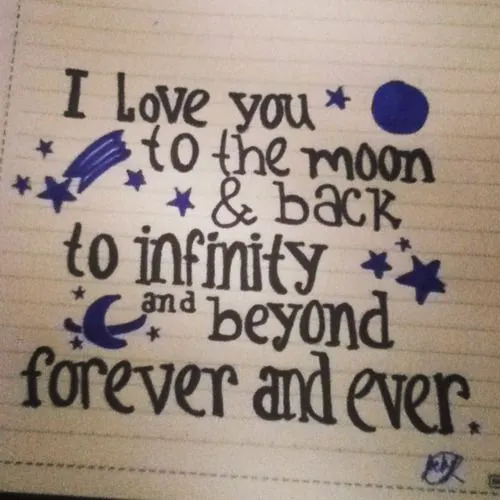 I Love you
to the moon
& back
to infinity
and beyond
forever and ever.